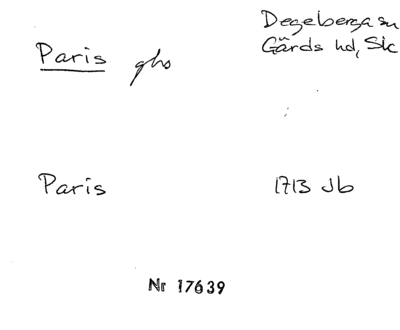 Paris gho
Degeberga sn
Gärds hd, Sk
Paris
1713 Jb
Nr 17639